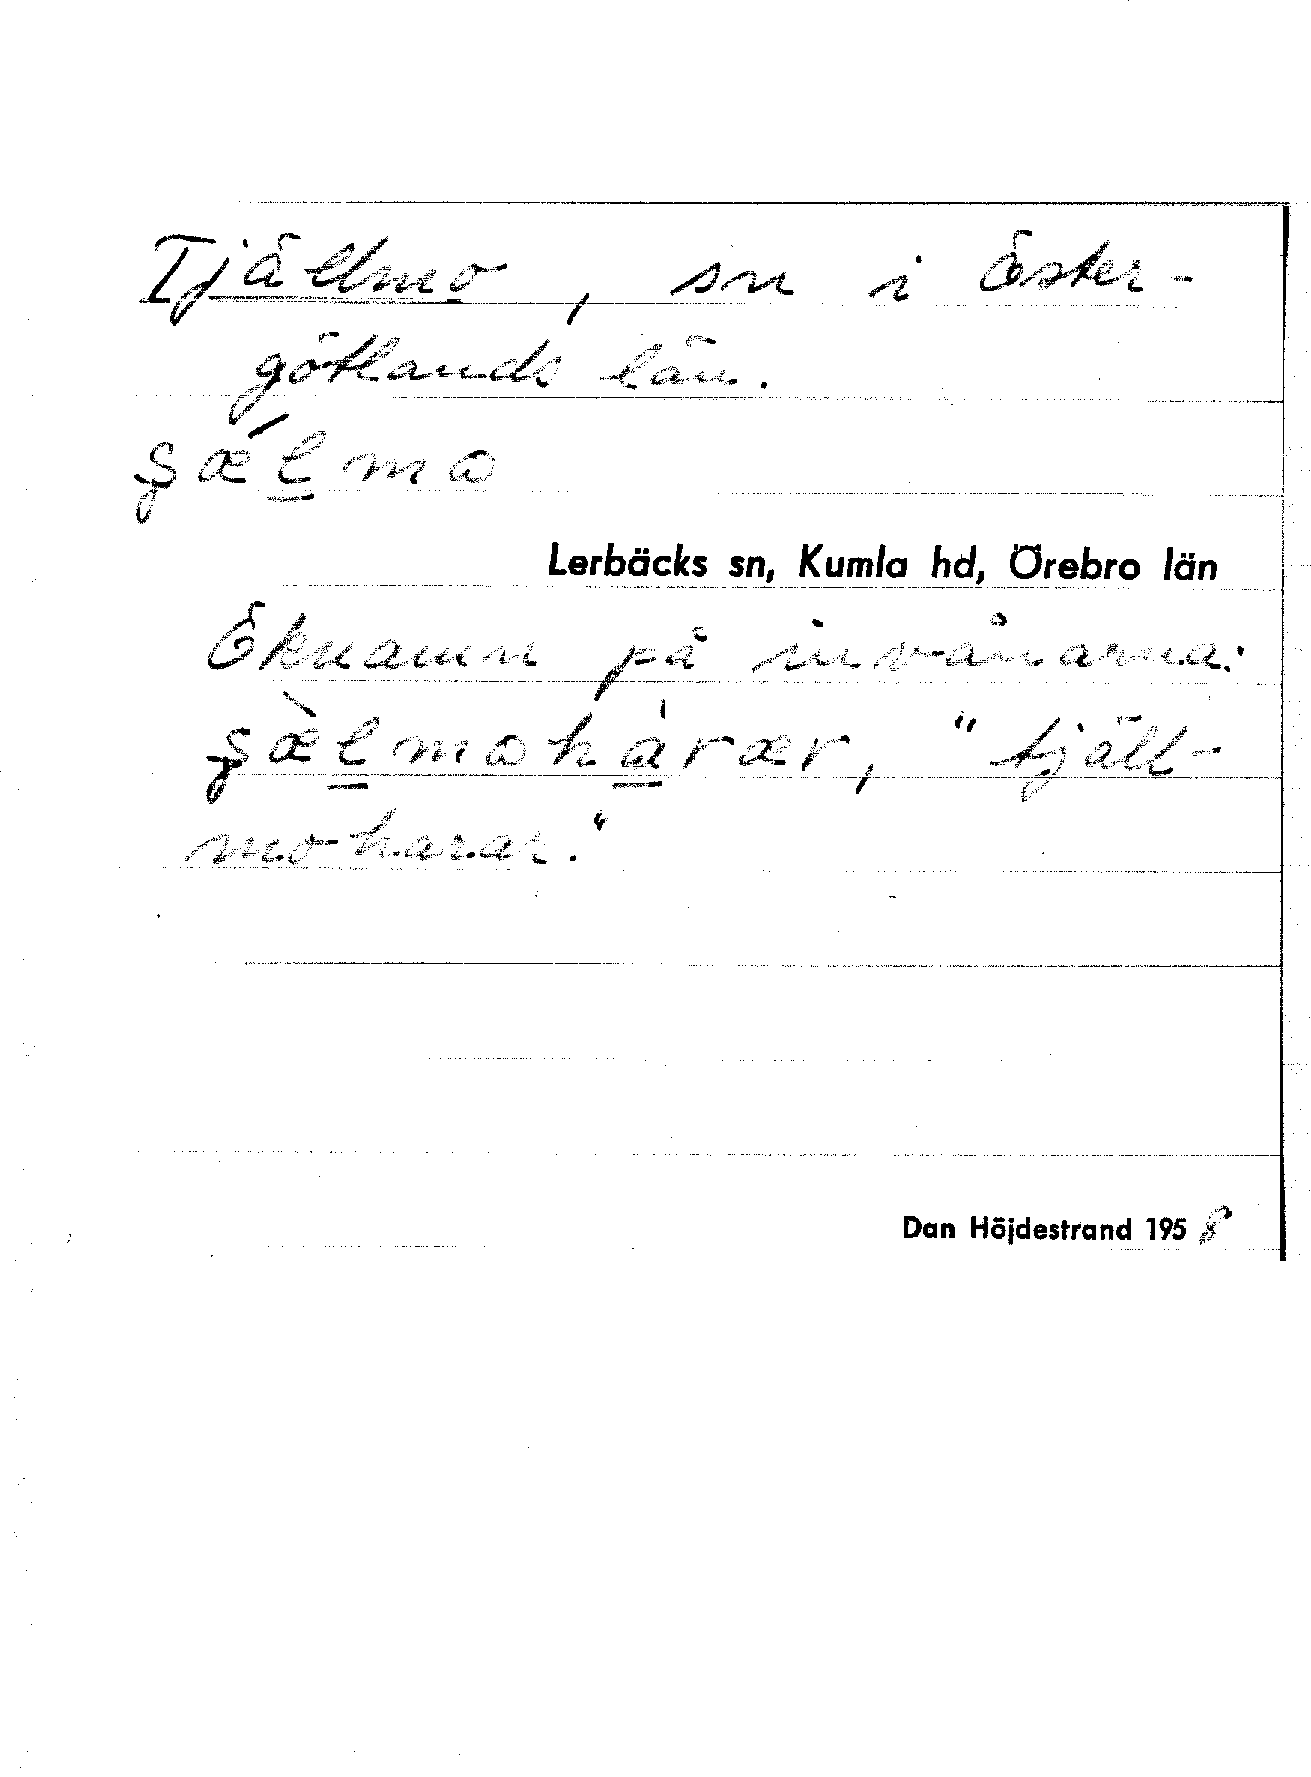 Tjällmo, sn i Öster-
götlands län.
ʂǽl̲mɷ
Lerbäcks sn, Kumla hd, Örebro län
Öknamn på invånarna:
ʂæ̀l̲mɷha̲̍rær, "tjäll-
moharar."
Dan Höjdestrand 1958